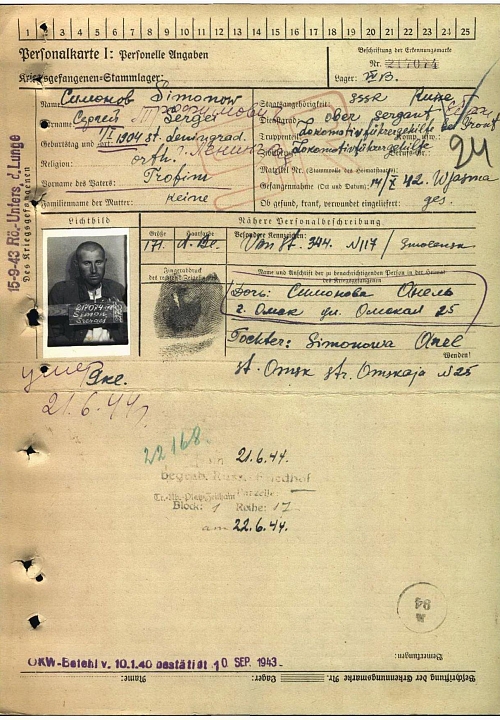 1 2 3 4 5 6 7 8 9 10 11 12 13 14 15 16 17 18 19 20 21 22 23 24 25
Personalkarte I: Personelle Angaben
Kriegsgefangenen-Stammlager:
Beschriftung der Erkennungsmarke
Nr. 217074
Lager: IV B.
Name: Симонов Simonow
Vorname: Сергей Sergei
Geburtstag und -ort: 1904 st. Leningrad.
Religion: orth.
Vorname des Vaters: Trofim
Familienname der Mutter: keine
Staatsangehörigkeit: SSSR Russe
Dienstgrad: ober sergant
Truppenteil: Lokomotivführergehilfe Komp. usw.:
Lokomotivführergehilfe
Matrikel Nr. (Stammrolle des Heimatstaates)
Gefangennahme (Ort und Datum): 14/X 42. Wjasma
Ob gesund, krank, verwundet eingeliefert: ges.
24
15-9-43 Rö.-Unters. d. Lunge
Des Kriegsgefangenen
Lichtbild
Nähere Personalbeschreibung
Größe
Haarfarbe
Besondere Kennzeichen:
171.
Fingerabdruck
des rechten Zeigefingers
Name und Anschrift der zu benachrichtigenden Person in der Heimat
des Kriegsgefangenen
Дочь: Симонова Анель
г. Омск ул. Омская 25
Tochter: Simonowa Anel
Wenden!
st. Omsk str. Omskaja N 25
умер
21.6.44г.
22168.
21.6.44.
Begrab. Russ. Friedhof
Parzelle: —
Block: 1 Reihe: 17
am 22.6.44.
Bemerkungen:
OKW-Befehl v. 10.1.40 bestätigt 10 SEP. 1943
Name:
Lager:
Beschriftung der Erkennungsmarke Nr.